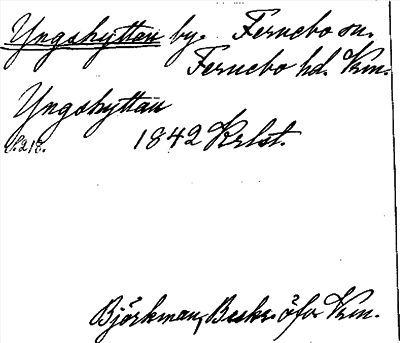 Yngshyttan by. Fernebo sn.
Fernebo hd. Vrm.
Yngshyttan
S. 218. 1842 Krlst.
Björkman, Beskr. öfver Vrm.